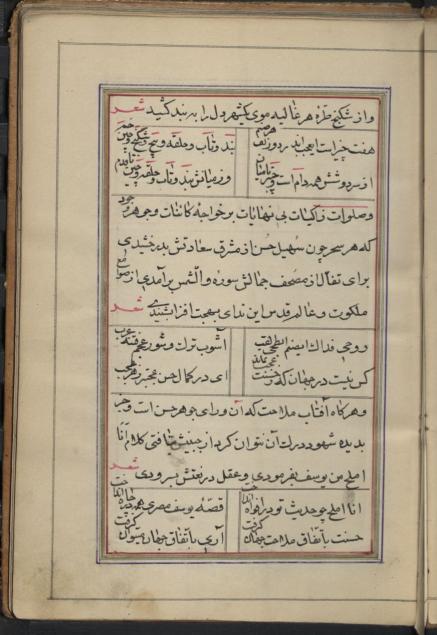 و از شکنج طرهٔ هر غالیه موی یکشهر دل را به بند کشید شعر
هفت چیز است ای عجب اندر دو زلف هر صنم بند و تاب و حلقه و پیچ و شکنج و چین و خم
از سر دوشش همه دام است و وز میانش بند و تاب و حلقه و چین
و صلوات زاکیات بی نهایات بر خواجهٔ کاینات و جوهر وجود
که هر سحر چون سهیل حسن از مشرق سعادتش بدرخشیدی
برای تفأل از مصحف جمالش سورهٔ والشمس برآمدی از صوامع
ملکوت و عالم قدس این ندای بهجت افزا شنیدی شعر
روحی فداک ای صنم ابطحی لقب آشوب ترک و شور عجم فتنهٔ عرب
کس نیست در جهان که ز حسنت عجب نماند ای در کمال حسن عجبتر ز هر عجب
و هر گاه آفتاب ملاحت که آن ورای جوهر حسن است و جز
بدیدهٔ شهود درک آن نتوان کرد از جبینش تافتی کلام انا
املح من یوسف بفرمودی و عقل در نعتش سرودی شعر
انا املح چو حدیث تو در افواه انداخت قصهٔ یوسف مصری همه در چاه انداخت
حسنت باتفاق ملاحت جهان گرفت آری باتفاق جهان میتوان گرفت